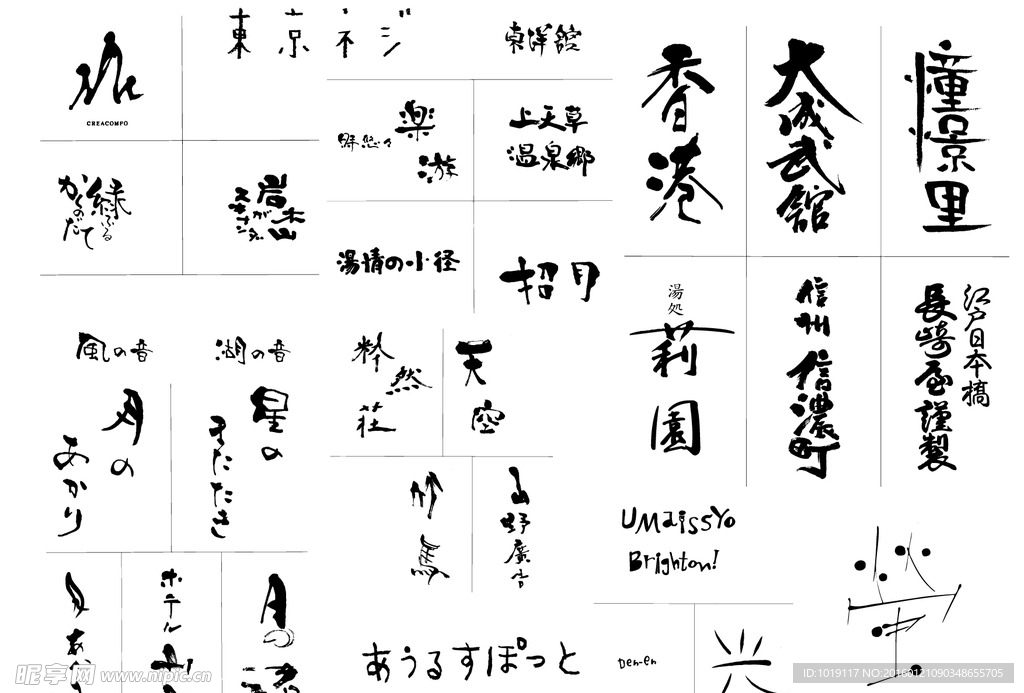 CREACOMPO
東京ネジ
東洋館
楽
游
上天草
温泉郷
緑ふる
かくのだて
岩木山が
湯情の小径
招月
香港
大成武館
憧憬里
湯処
莉園
信州
信濃町
江戸日本橋
長崎屋謹製
風の音
湖の音
月の
あかり
星の
またたき
粋然荘
天空
竹馬
山野廣告
UMaissyo
Brighton!
ホテル
月の
あうるすぽっと
Den-en
昵享网 www.nipic.cn
ID:1019117 NO:20160121090348655705